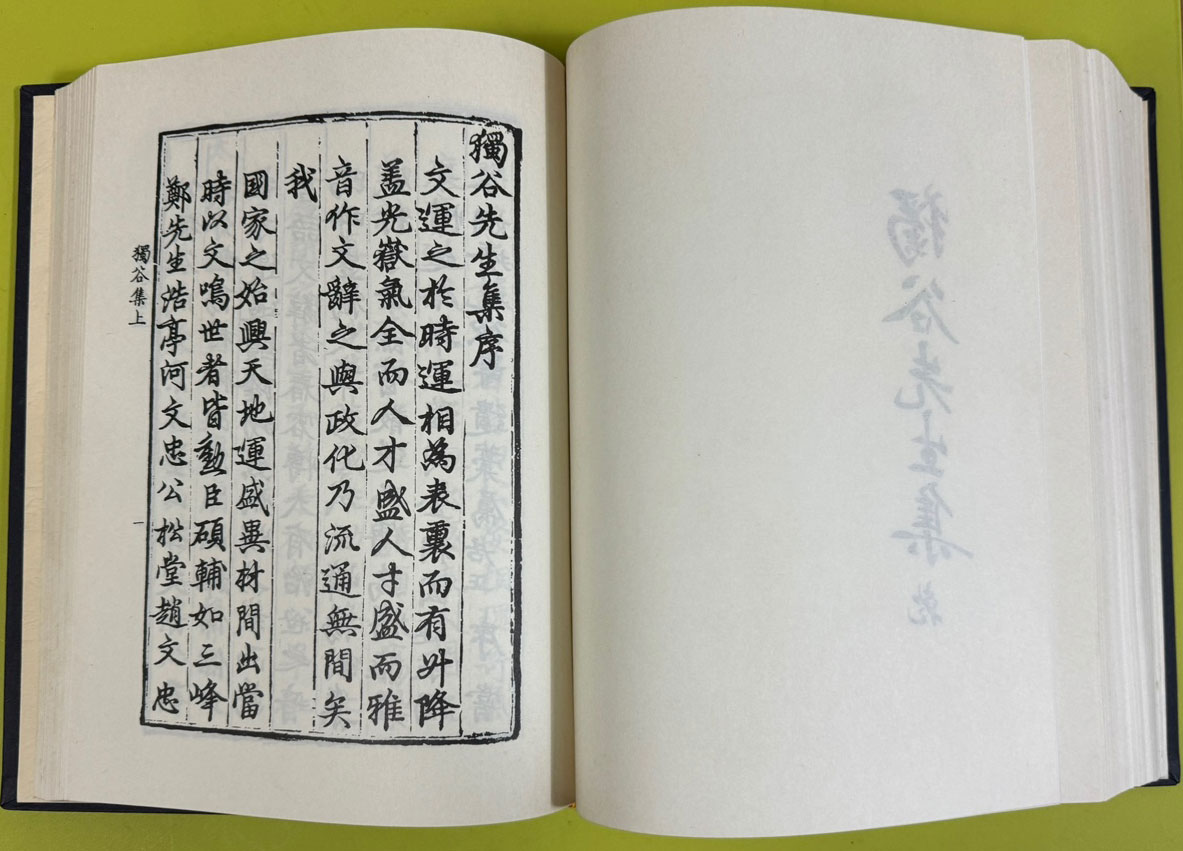 獨谷先生集序
文運之於時運相為表裏而有升降
盖光嶽氣全而人才盛人才盛而雅
音作文辭之與政化乃流通無間矣
我
國家之始興天地運盛異材間出當
時以文鳴世者皆勳臣碩輔如三峰
鄭先生浩亭河文忠公松堂趙文忠
獨谷集上
一